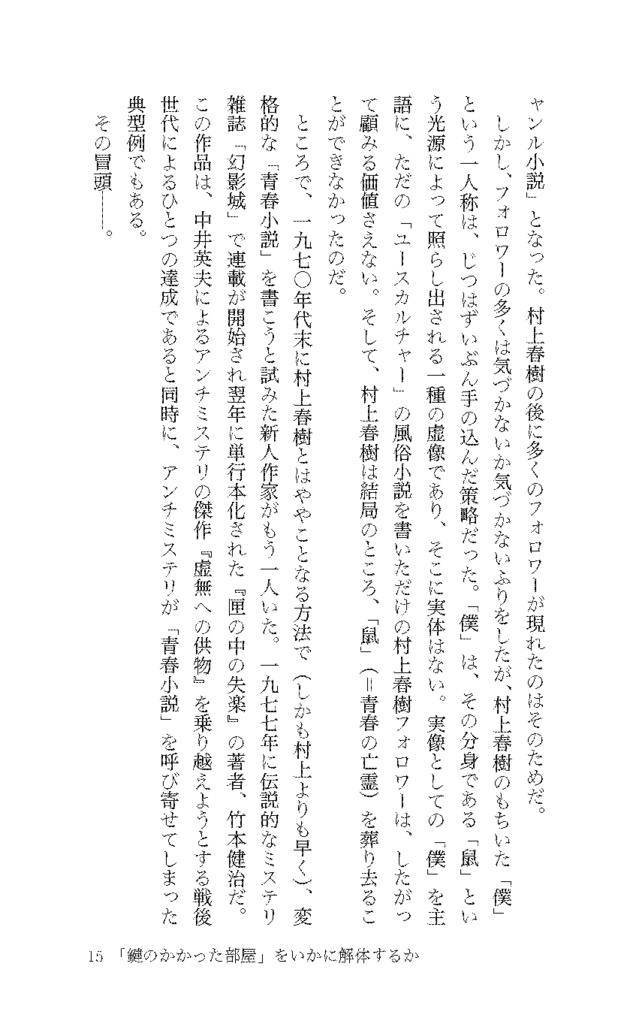 ャンル小説」となった。村上春樹の後に多くのフォロワーが現れたのはそのためだ。
しかし、フォロワーの多くは気づかないか気づかないふりをしたが、村上春樹のもちいた「僕」
という一人称は、じつはずいぶん手の込んだ策略だった。「僕」は、その分身である「鼠」とい
う光源によって照らし出される一種の虚像であり、そこに実体はない。実像としての「僕」を主
語に、ただの「ユースカルチャー」の風俗小説を書いただけの村上春樹フォロワーは、したがっ
て顧みる価値さえない。そして、村上春樹は結局のところ、「鼠」(＝青春の亡霊)を葬り去るこ
とができなかったのだ。
ところで、一九七〇年代末に村上春樹とはややことなる方法で(しかも村上よりも早く)、変
格的な「青春小説」を書こうと試みた新人作家がもう一人いた。一九七七年に伝説的なミステリ
雑誌「幻影城」で連載が開始され翌年に単行本化された『匣の中の失楽』の著者、竹本健治だ。
この作品は、中井英夫によるアンチミステリの傑作『虚無への供物』を乗り越えようとする戦後
世代によるひとつの達成であると同時に、アンチミステリが「青春小説」を呼び寄せてしまった
典型例でもある。
その冒頭――。
15 「鍵のかかった部屋」をいかに解体するか